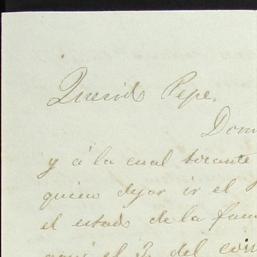 Querido Pepe,
Dom
y á la cual tocante
quiero dejar ir el
el estado de la fam
aquí el 2 del cor